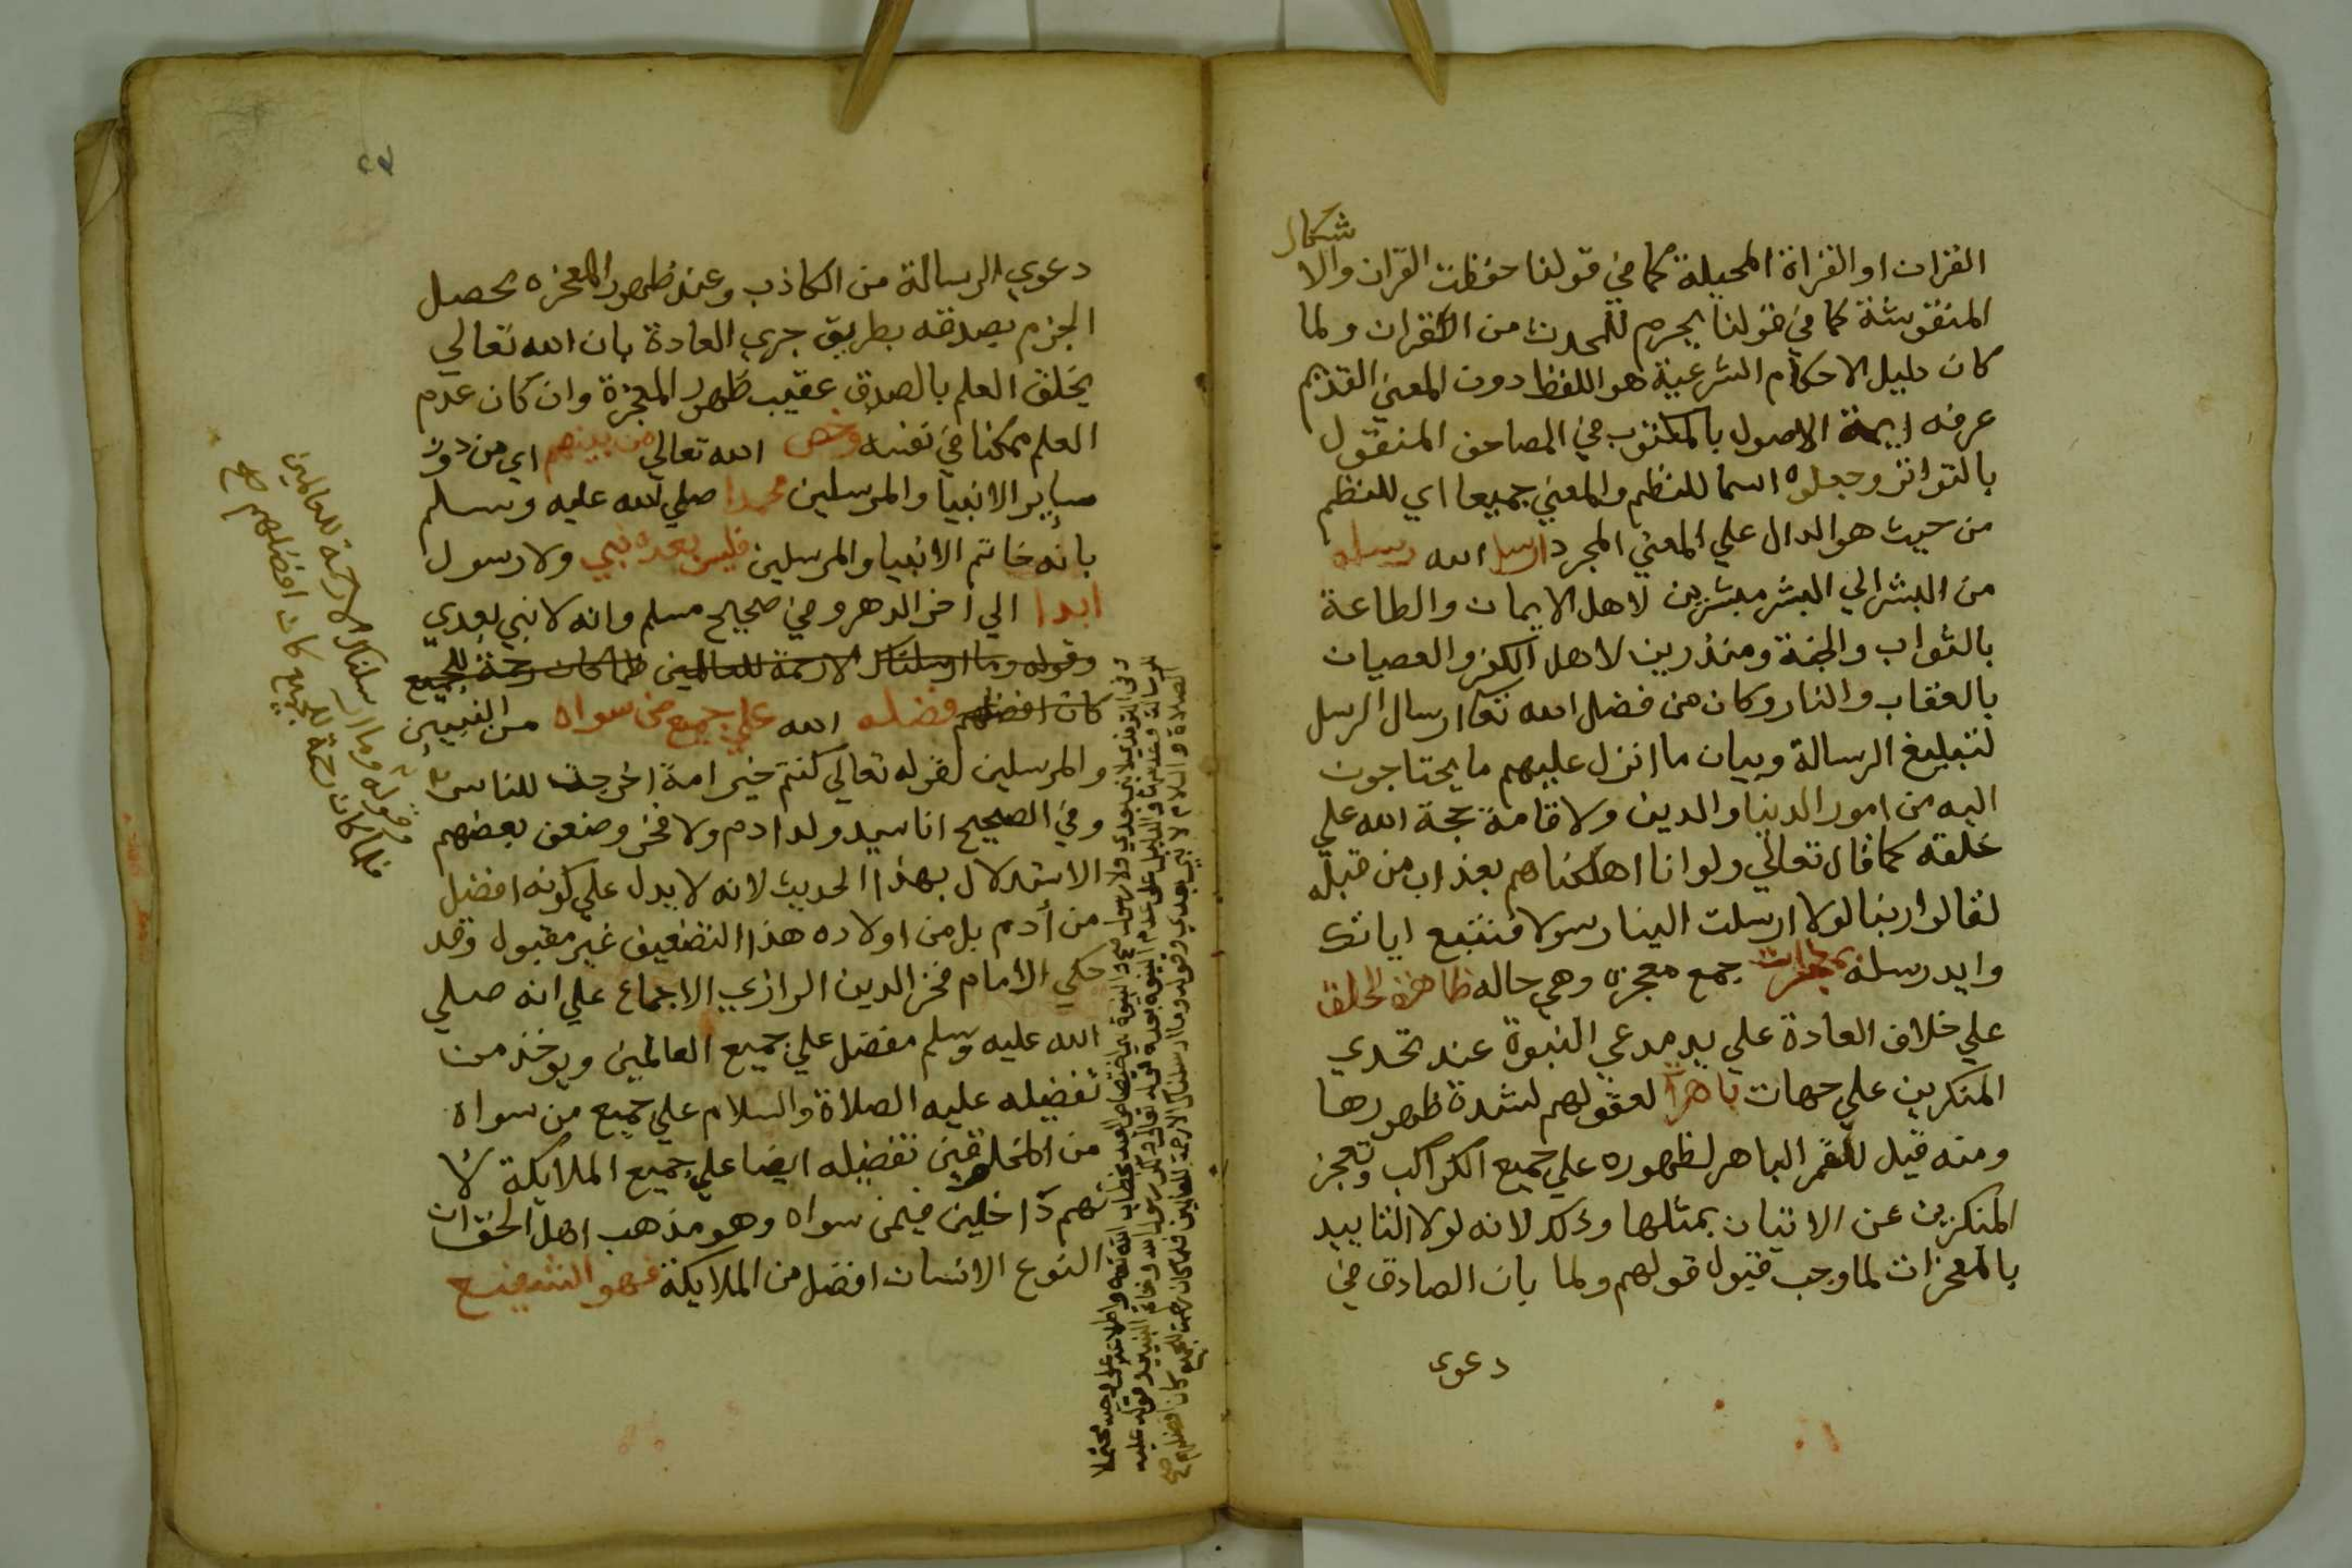 القران او القراة المخيلة كما في قولنا حفظت القران والا
شكال
المنقوشة كما في قولنا يحرم للمحدث من القران ولما
كان دليل الاحكام الشرعية هو اللفظ دون المعني القديم
عرفه ايمة الاصول بالمكتوب في المصاحف المنقول
بالتواتر وجعلوه اسما للنظم والمعني جميعا اي للنظم
من حيث هو الدال علي المعني المجرد ارسل الله رسله
من البشر الي البشر مبشرين لاهل الايمان والطاعة
بالثواب والجنة ومنذرين لاهل الكفر والعصيان
بالعقاب والنار وكان من فضل الله تعا ارسال الرسل
لتبليغ الرسالة وبيان ما انزل عليهم ما يحتاجون
اليه من امور الدينا والدين ولاقامة حجة الله علي
خلقه كما قال تعالي ولو انا اهلكناهم بعذاب من قبله
لقالوا ربنا لولا ارسلت الينا رسولا فنتبع اياتك
وايد رسله بمعجزات جمع معجزه وهي حاله ظاهرة الخلق
علي خلاف العادة علي يد مدعي النبوة عند تحدي
المنكرين علي جهات باهرات لعقولهم لشدة ظهورها
ومنه قيل للقمر الباهر لظهوره علي جميع الكواكب وتعجز
المنكرين عن الاتيان بمثلها وذلك لانه لولا التاييد
بالمعجزات لما وجب قبول قولهم ولما بان الصادق في
دعوى
٢٧
دعوي الرسالة من الكاذب وعند ظهور المعجزه يحصل
الجزم بصدقه بطريق جري العادة بان الله تعالي
يخلق العلم بالصدق عقيب ظهور المعجزة وان كان عدم
العلم ممكنا في نفسه وخص الله تعالي من بينهم اي من دون
ساير الانبيا والمرسلين محمدا صلي الله عليه وسلم
بانه خاتم الانبيا والمرسلين فليس بعده نبي ولا رسول
ابدا الي اخر الدهر وفي صحيح مسلم وانه لا نبي بعدي
وقوله وما ارسلناك الا رحمة للعالمين فلما كان رحمة للجميع
كان افضلهم فضله الله علي جميع من سواه من النبيين
والمرسلين لقوله تعالي كنتم خير امة اخرجت للناس
وفي الصحيح انا سيد ولد ادم ولا فخر وضعف بعضهم
الاستدلال بهذا الحديث لانه لا يدل علي كونه افضل
من أدم بل من اولاده هذا التضعيف غير مقبول وقد
حكي الامام فخر الدين الرازي الاجماع علي انه صلي
الله عليه وسلم مفضل علي جميع العالمين ويوخذ من
تفضيله عليه الصلاة والسلام علي جميع من سواه
من المخلوقين تفضيله ايضا علي جميع الملايكة لا
نهم داخلين فيمن سواه وهو مذهب اهل الحق ان
النوع الانسان افضل من الملايكة فهو الشفيع
وقوله وما ارسلناك الا رحمة للعالمين
فلما كان رحمة للجميع كان افضلهم صح
الصلاة والسلام لا نبي بعدي وقوله وما ارسلناك الا رحمة للعالمين فلما كان رحمة للجميع كان افضلهم صح